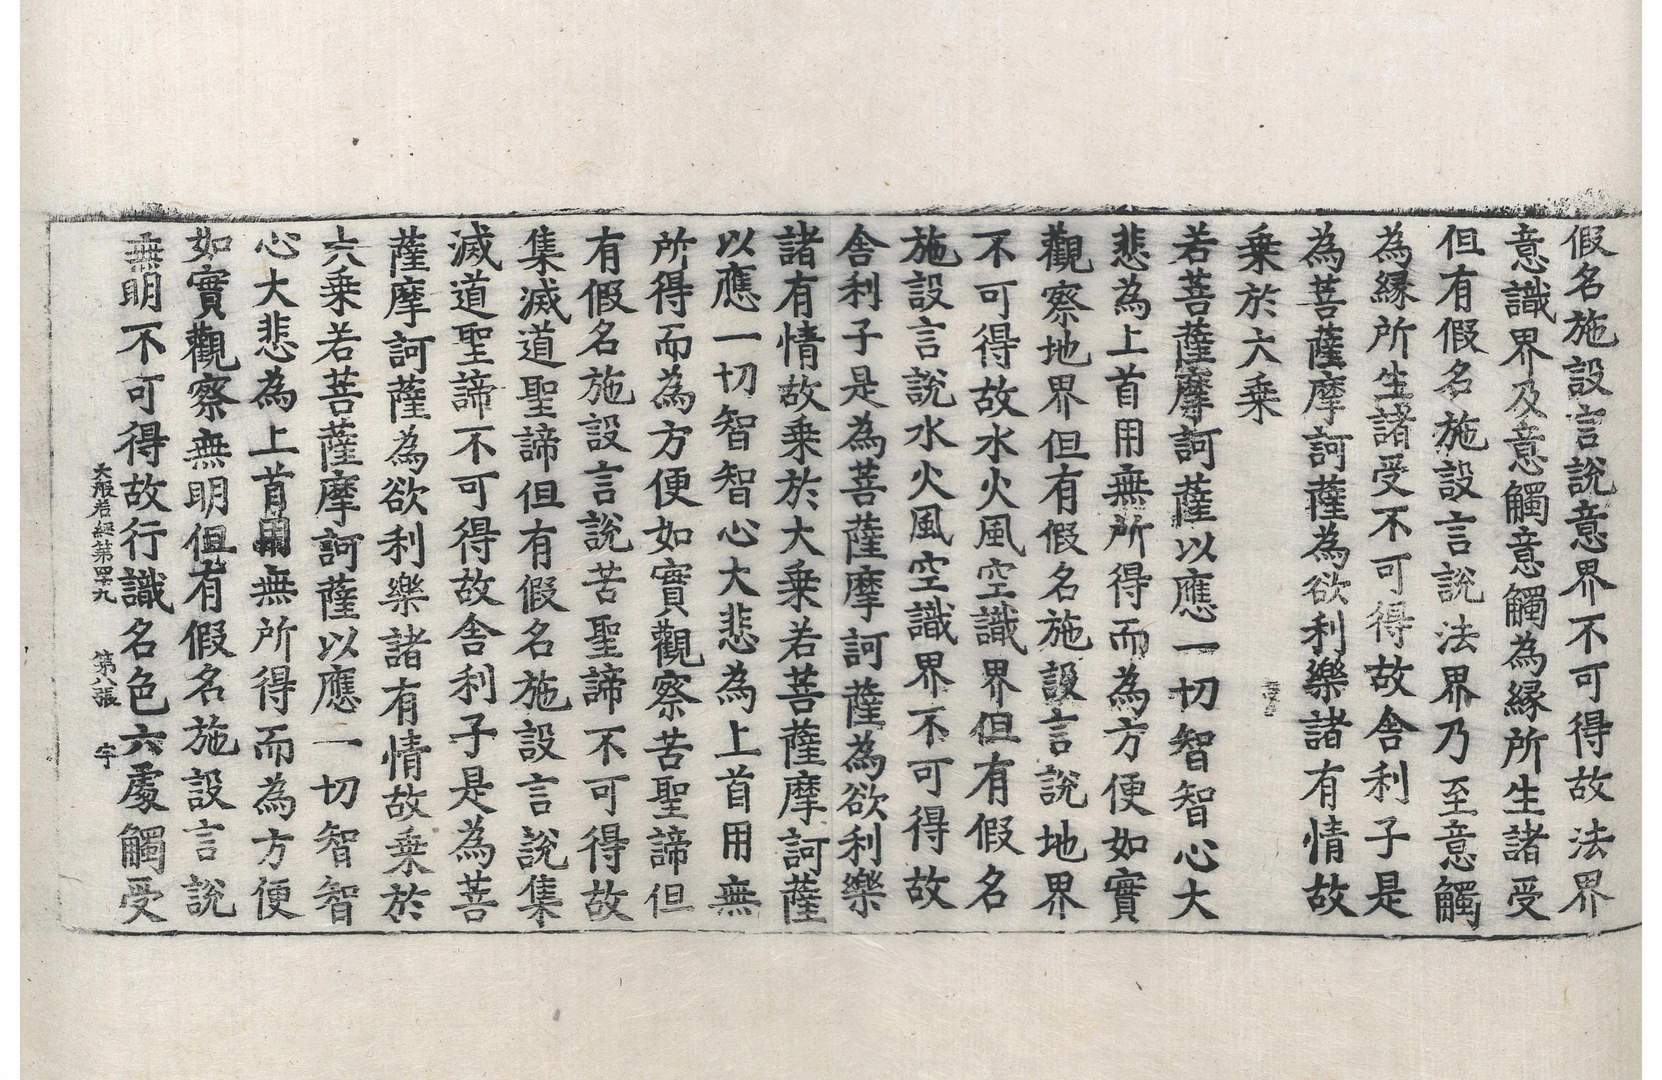 假名施設言說意界不可得故法界
意識界及意觸意觸為緣所生諸受
但有假名施設言說法界乃至意觸
為緣所生諸受不可得故舍利子是
為菩薩摩訶薩為欲利樂諸有情故
乘於大乘
若菩薩摩訶薩以應一切智智心大
悲為上首用無所得而為方便如實
觀察地界但有假名施設言說地界
不可得故水火風空識界但有假名
施設言說水火風空識界不可得故
舍利子是為菩薩摩訶薩為欲利樂
諸有情故乘於大乘若菩薩摩訶薩
以應一切智智心大悲為上首用無
所得而為方便如實觀察苦聖諦但
有假名施設言說苦聖諦不可得故
集滅道聖諦但有假名施設言說集
滅道聖諦不可得故舍利子是為菩
薩摩訶薩為欲利樂諸有情故乘於
大乘若菩薩摩訶薩以應一切智智
心大悲為上首用無所得而為方便
如實觀察無明但有假名施設言說
無明不可得故行識名色六處觸受
大般若經第四十九 第八張 宇